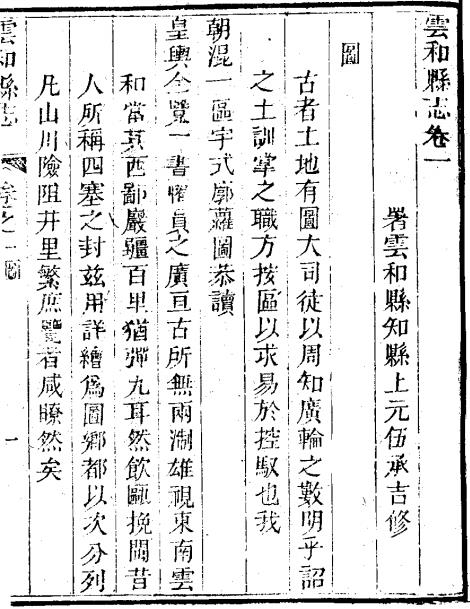 雲和縣志卷一
署雲和縣知縣上元伍承吉修
圖
古者土地有圖大司徒以周知廣輪之數明乎詔
之土訓掌之職方按區以求易於控馭也我
朝混一區宇式廓蘿圖恭讀
皇輿全覽一書幅員之廣亘古所無兩淛雄視東南雲
和當其西鄙巖疆百里猶彈丸耳然飲甌挽閩昔
人所稱四塞之封兹用詳繪爲圖鄉都以次分列
凡山川險阻井里繁庶覽者咸瞭然矣
雲和縣志
卷之一 圖
一